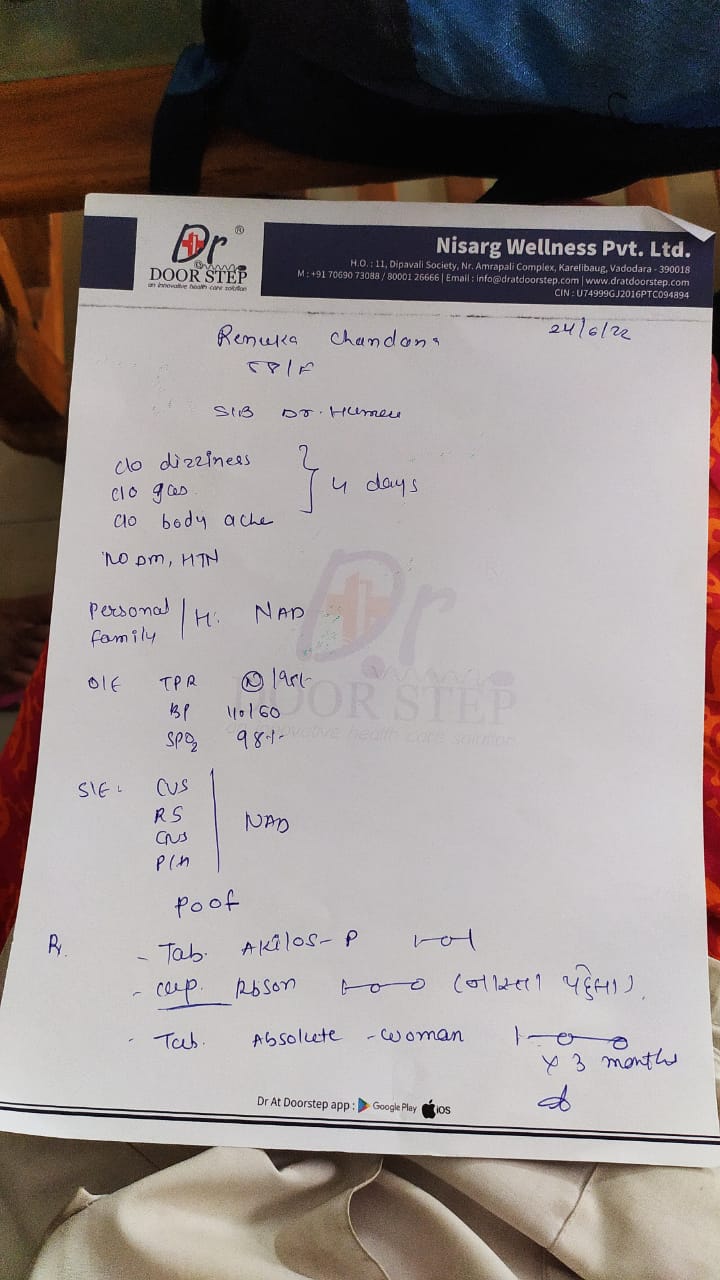 Dr ®
DOOR STEP
an innovative health care solution
Nisarg Wellness Pvt. Ltd.
H.O. : 11, Dipavali Society, Nr. Amrapali Complex, Karelibaug, Vadodara - 390018
M : +91 70690 73088 / 80001 26666 | Email : info@dratdoorstep.com | www.dratdoorstep.com
CIN : U74999GJ2016PTC094894
24/6/22
Renuka Chandana
/F
S/B Dr.
c/o dizziness
c/o gas
c/o body ache
} 4 days
NO DM, HTN
Personal
family
/ H: NAD
O/E TPR Ⓝ
BP 110/60
SPO2 98%
S/E: CVS
RS
CNS
P/A
NAD
Poof
Dr
DOOR STEP
an innovative health care solution
Rx.
- Tab. Akilos-P 1-0-1
- cap. Rbson 1-0-0 (નાસ્તા પહેલા).
- Tab. Absolute -woman 1-0-0
x 3 months
Dr At Doorstep app : Google Play iOS